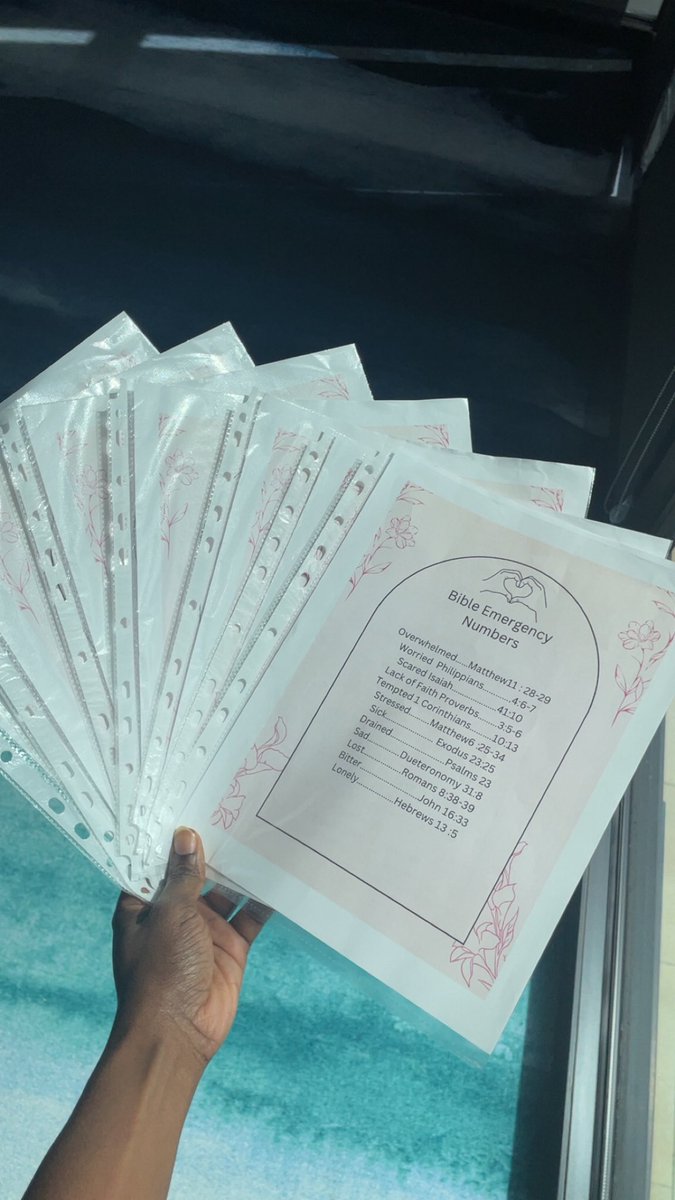 Bible Emergency
Numbers
Overwhelmed.....Matthew11 : 28-29
Worried Philippians............4:6-7
Scared Isaiah.................. 41:10
Lack of Faith Proverbs.........3:5-6
Tempted 1 Corinthians.........10:13
Stressed........Matthew6 :25-34
Sick.................. Exodus 23:25
Drained.....................Psalms 23
Sad............Dueteronomy 31:8
Lost...............Romans 8:38-39
Bitter.......................John 16:33
Lonely...............Hebrews 13 :5